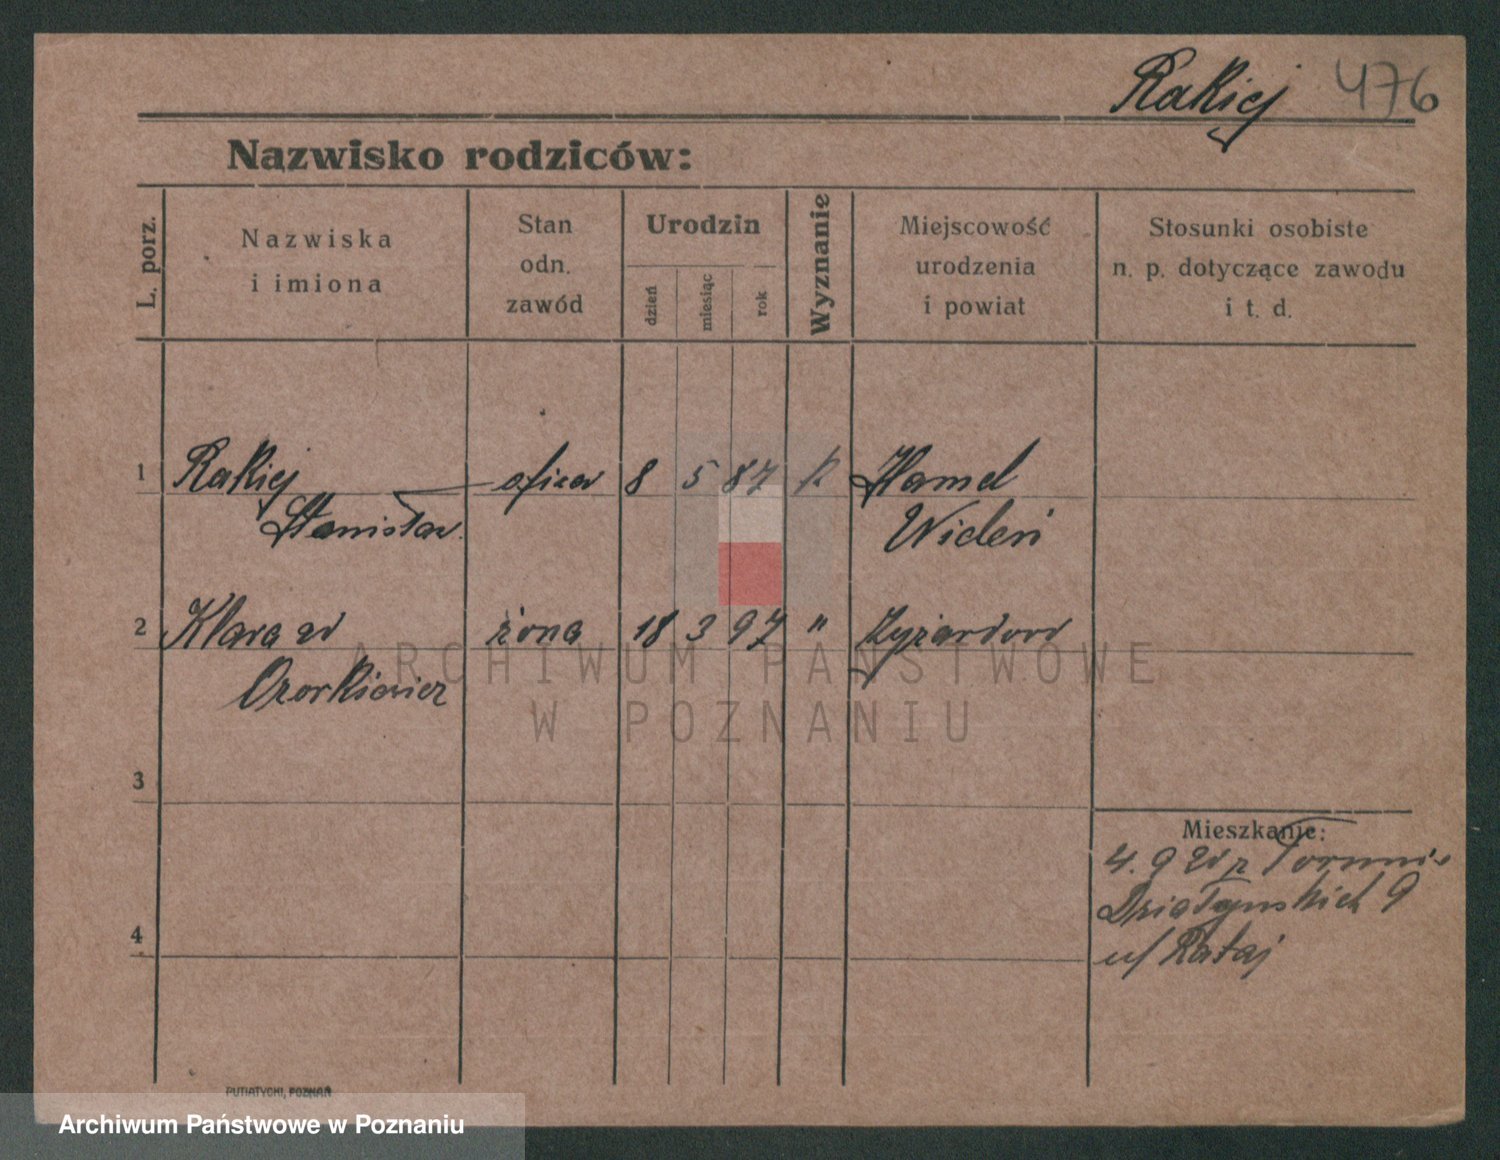 Rakiej 476
Nazwisko rodziców:
L. porz.
Nazwiska
i imiona
Stan
odn.
zawód
Urodzin
dzień
miesiąc
rok
Wyznanie
Miejscowość
urodzenia
i powiat
Stosunki osobiste
n. p. dotyczące zawodu
i t. d.
1 Rakiej oficer 8 5 87 k Hamel
Stanisław Wiedeń
2 Klara zd żona 18 3 97 " Żyrardow
Ozorkiewicz
ARCHIWUM PAŃSTWOWE
W POZNANIU
3
Mieszkanie:
4. 9 z Torunia
Działyńskich 9
u/ Rataj
4
PUTIATYCKI, POZNAŃ
Archiwum Państwowe w Poznaniu